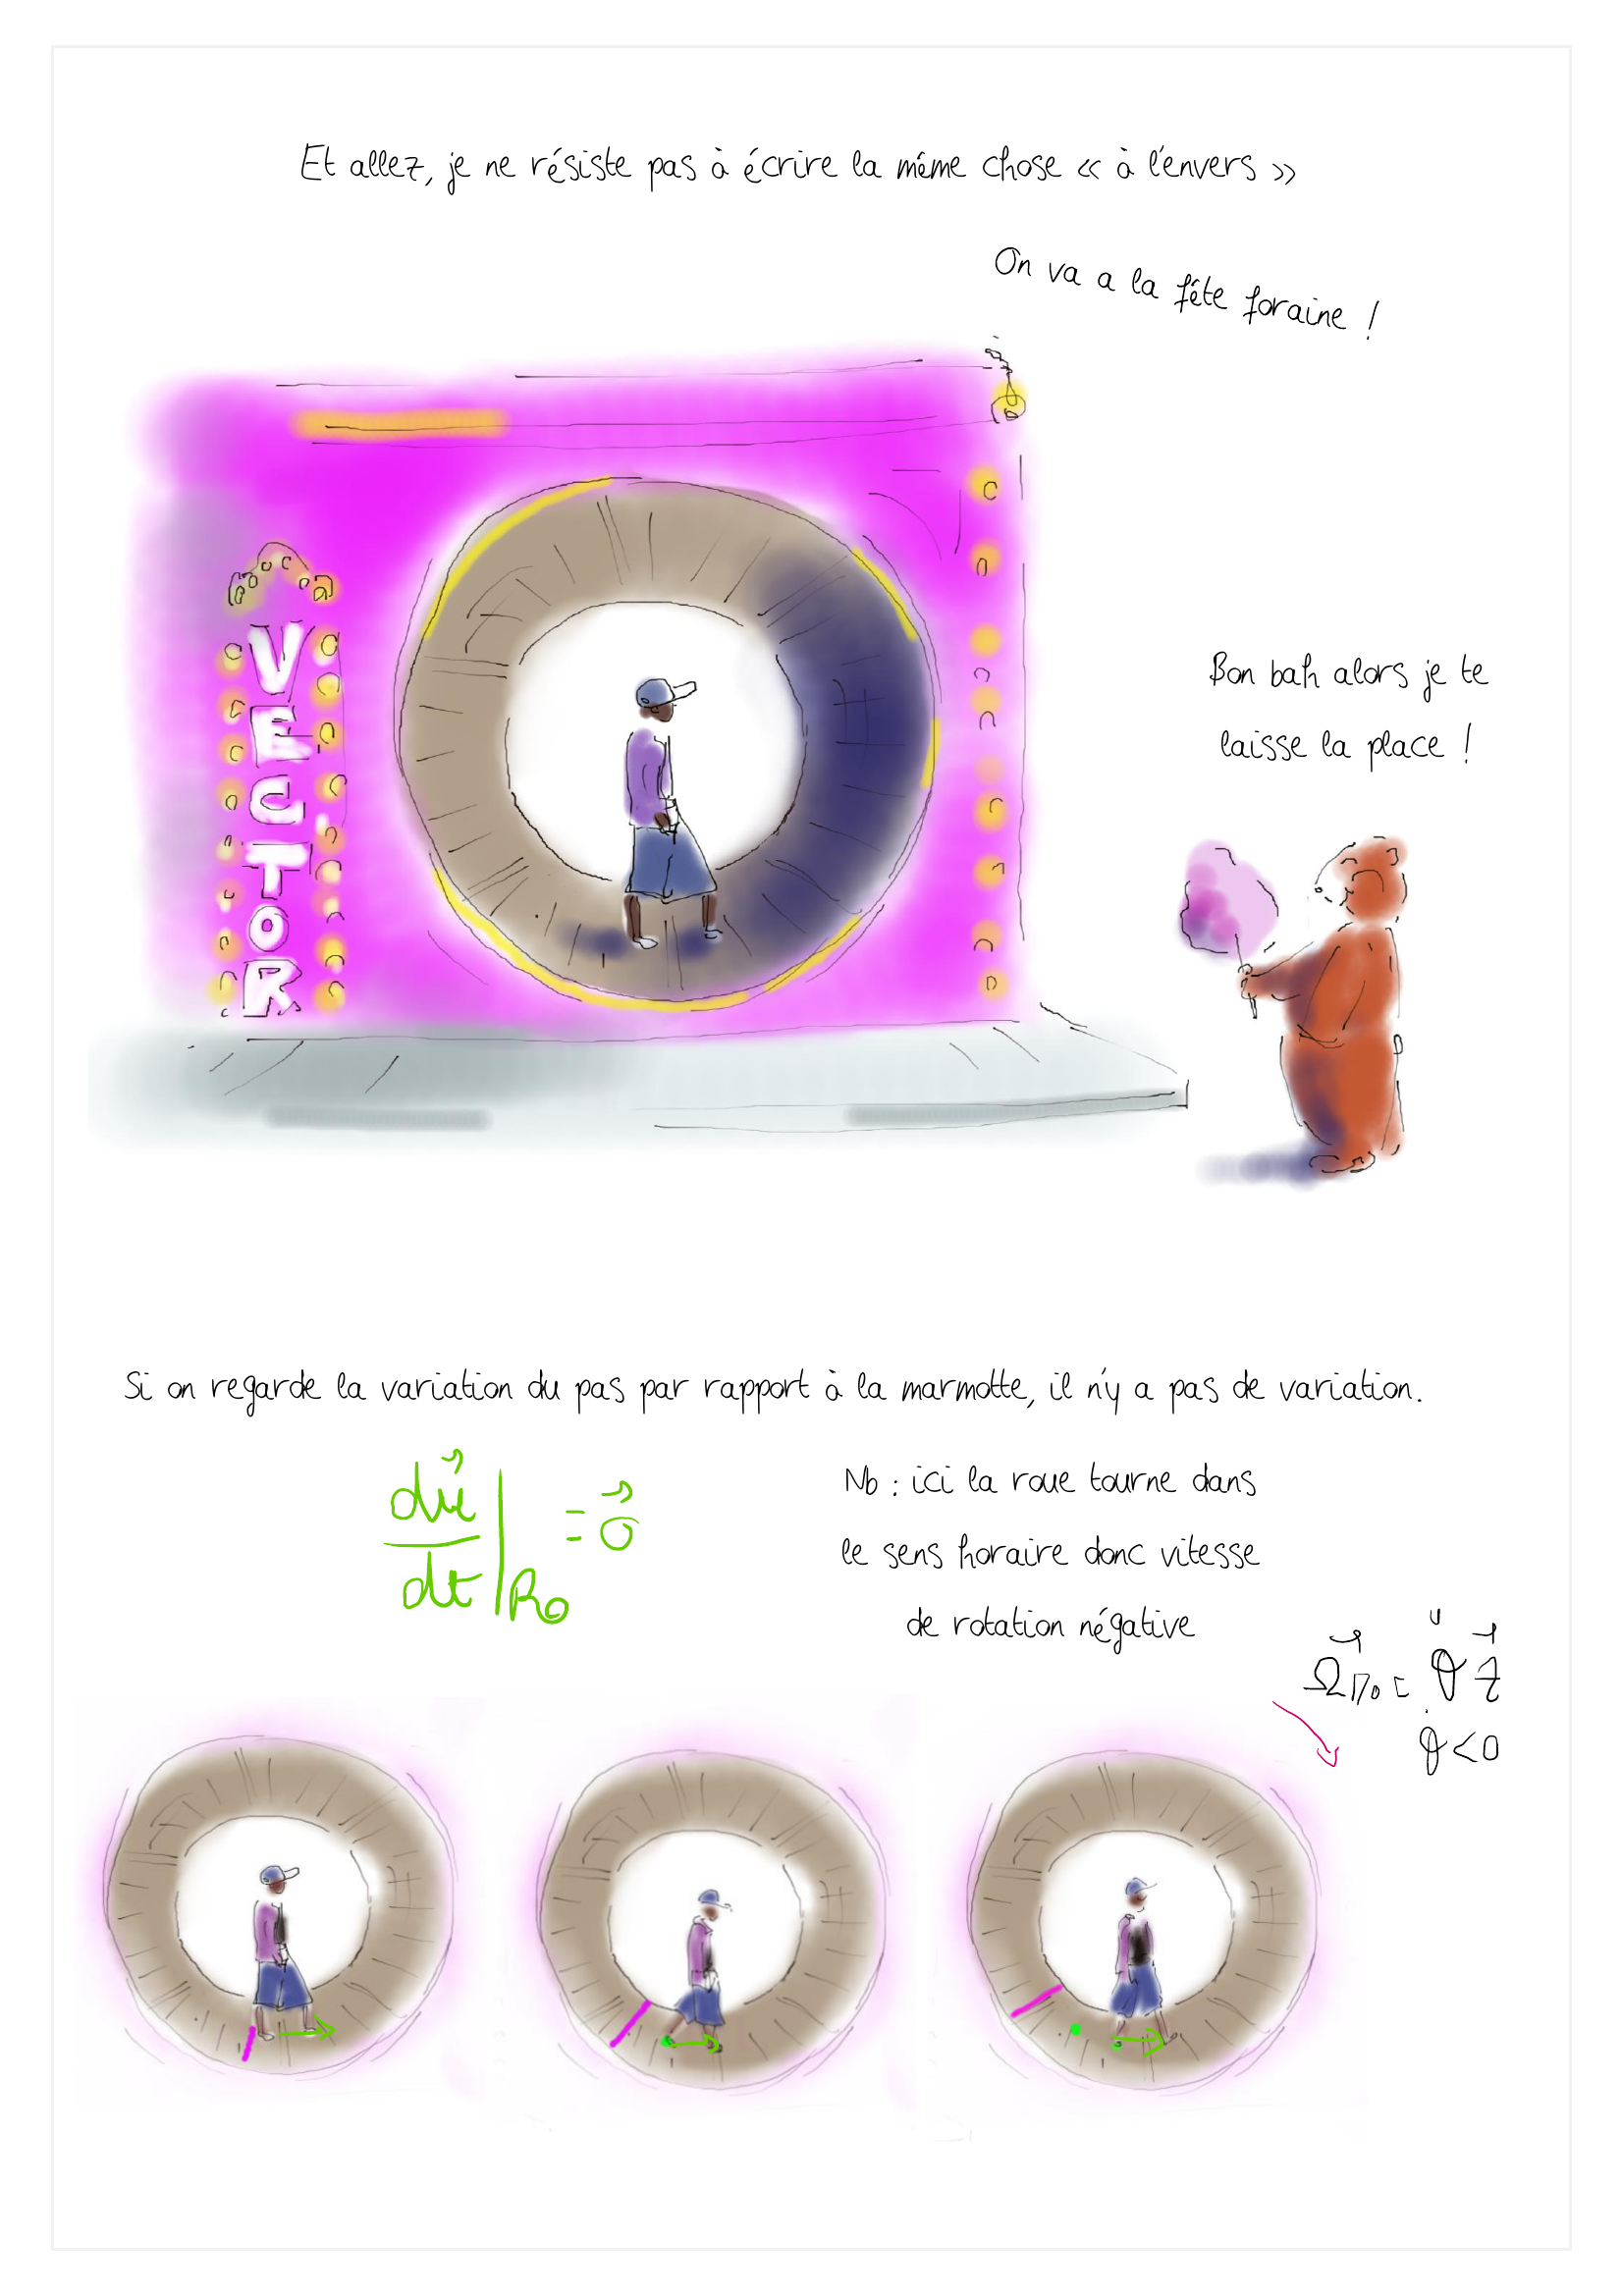 Et allez, je ne résiste pas à écrire la même chose « à l'envers »
On va a la fête foraine !
VECTOR
Bon bah alors je te
laisse la place !
Si on regarde la variation du pas par rapport à la marmotte, il n'y a pas de variation.
du⃗/dt|R₀ = 0⃗
Nb : ici la roue tourne dans
le sens horaire donc vitesse
de rotation négative
θ̇ < 0